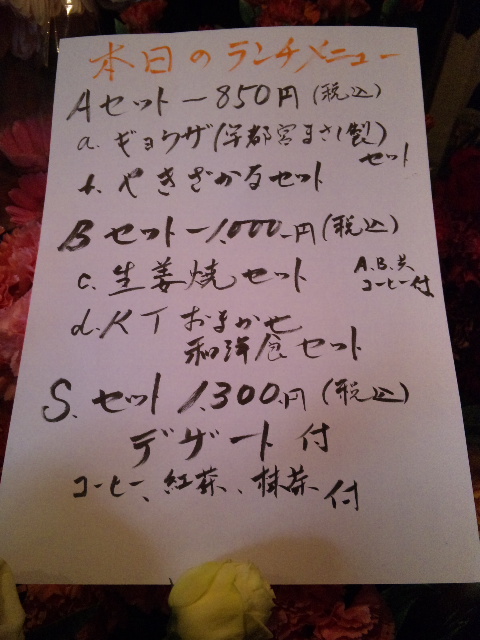 本日のランチメニュー
Aセット－850円(税込)
a. ギョウザ(宇都宮まさし製)
セット
b. やきざかなセット
Bセット－1,000円(税込)
c. 生姜焼セット
A.B.共
コーヒー付
d. KT おまかせ
和洋食セット
S.セット 1,300円(税込)
デザート付
コーヒー、紅茶、抹茶付